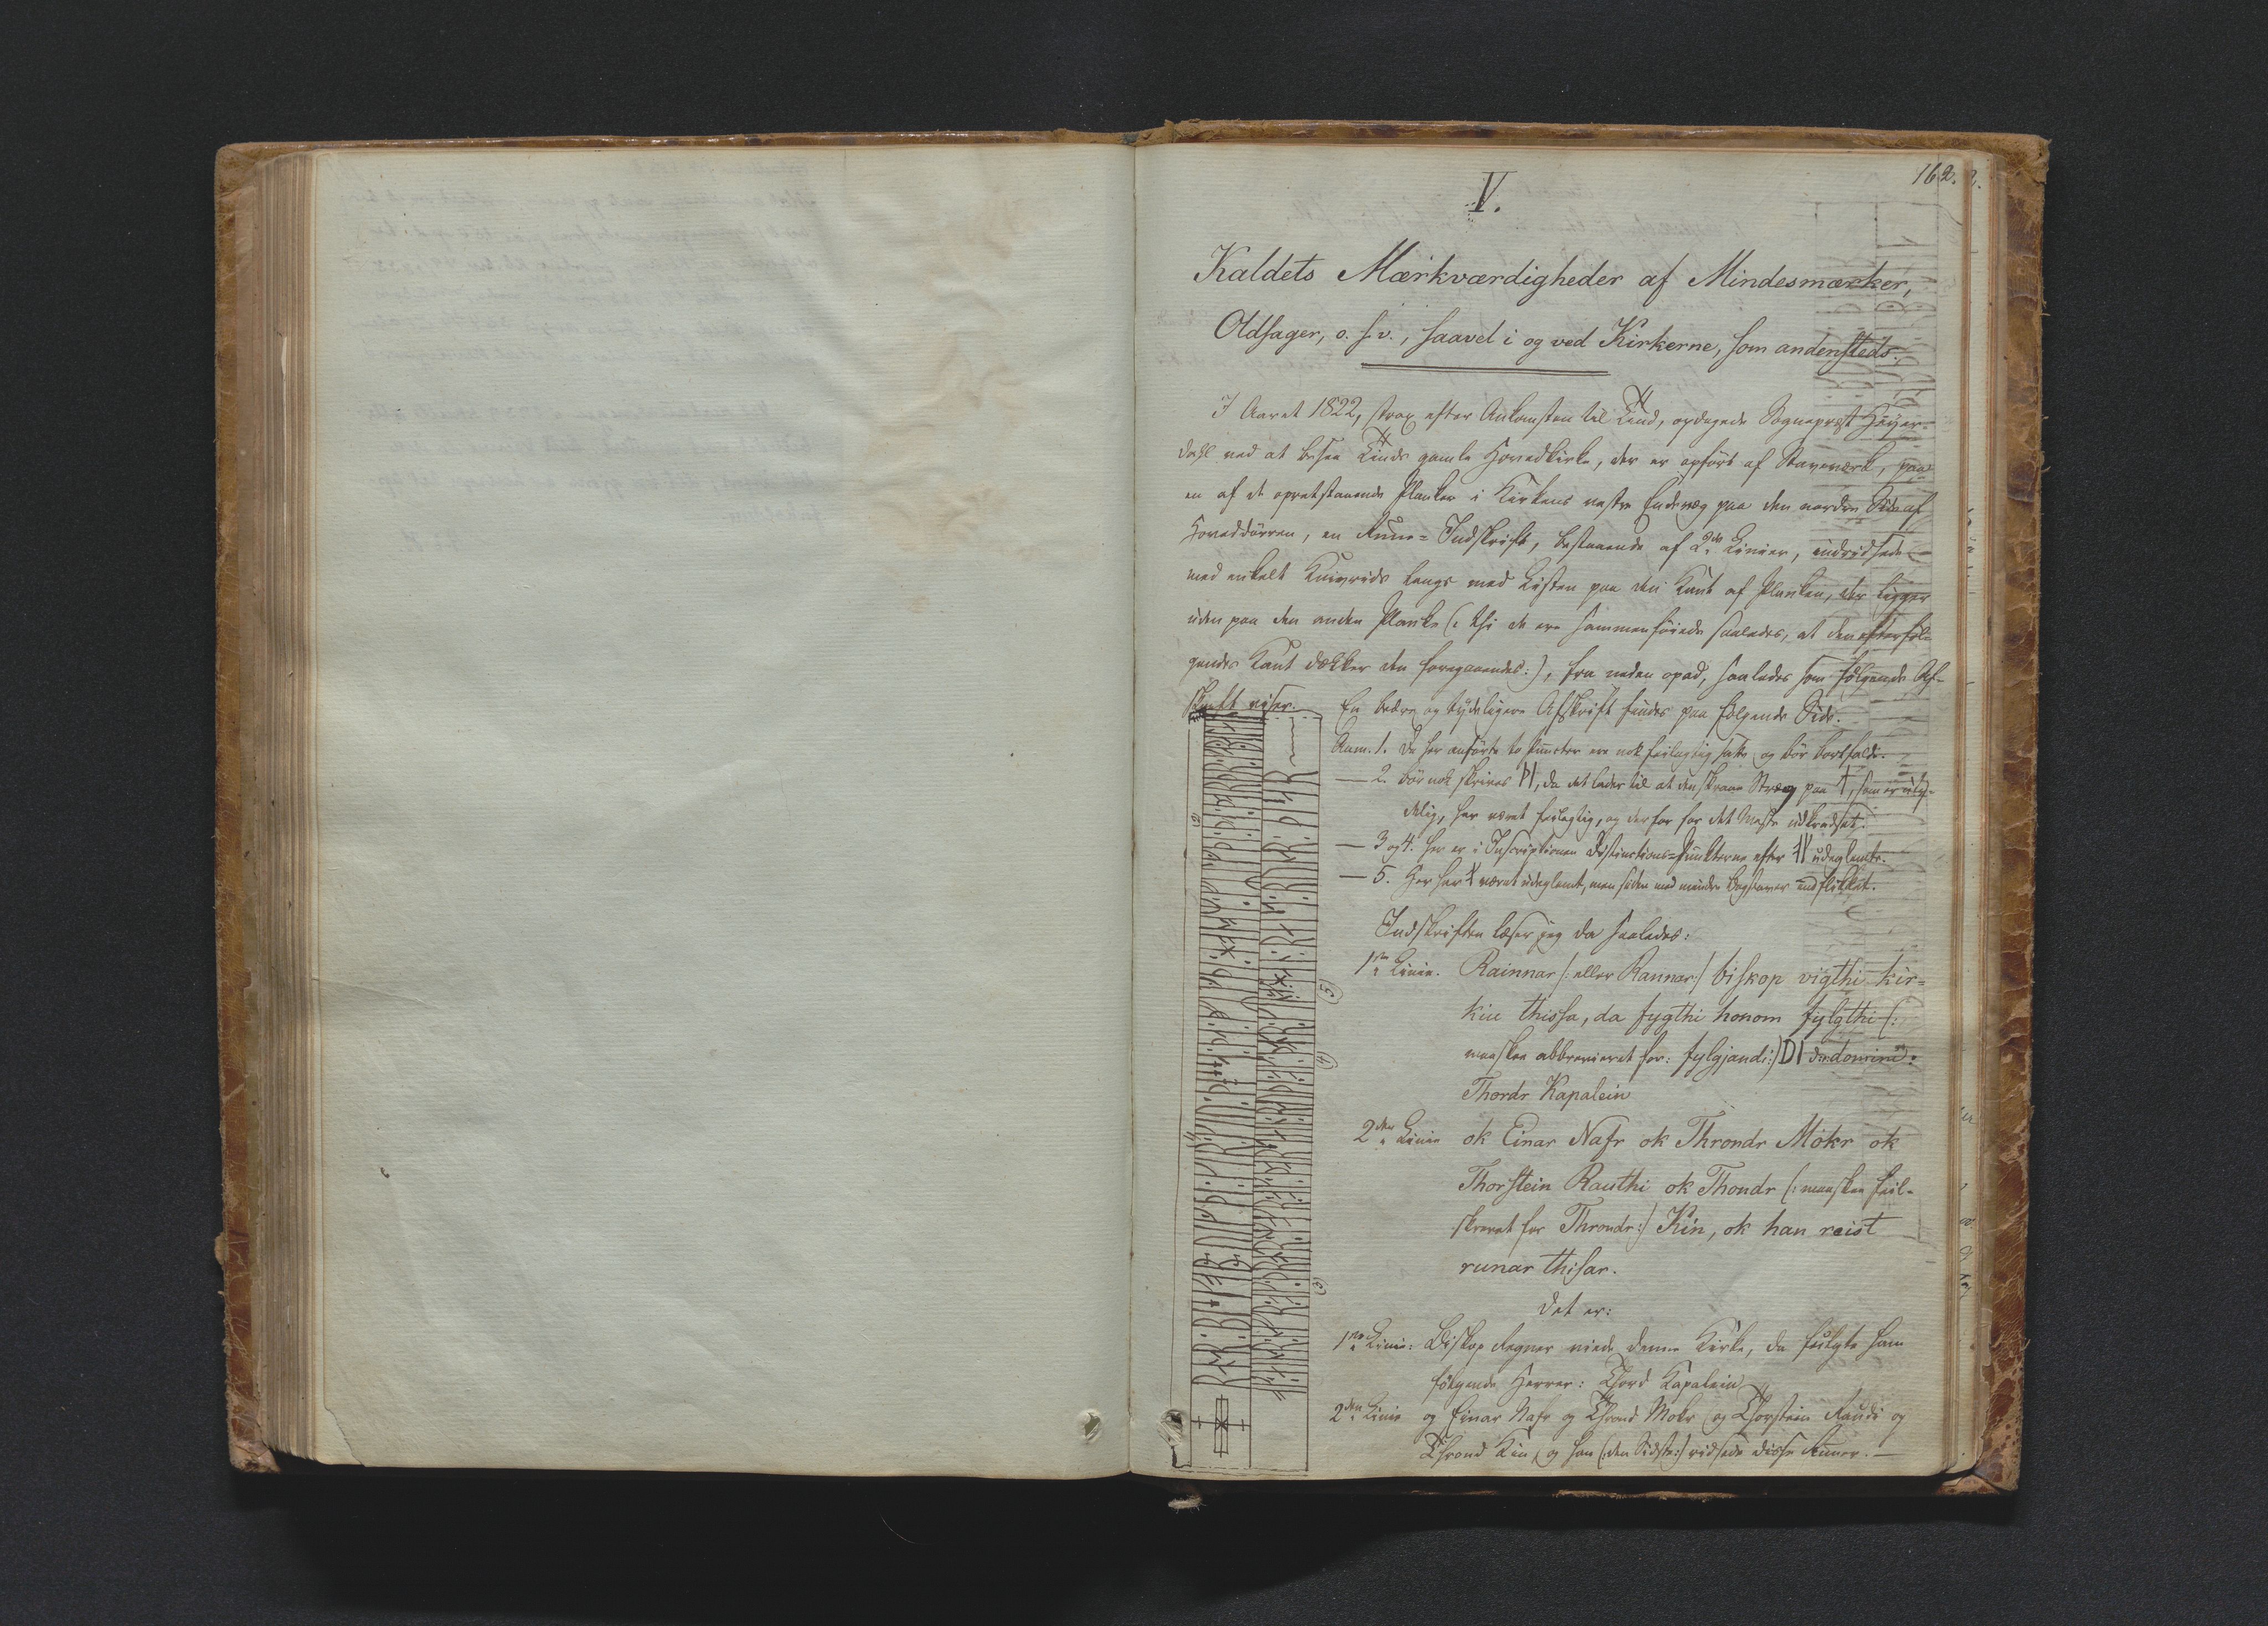 162.
V.
Kaldets Mærkværdigheder af Mindesmærker,
Oldsager, o. s. v., saavel i og ved Kirkerne, som andensteds.
I Aaret 1822, strax efter Ankomsten til Lind, opdagede Sognepræst Heyer-
dahl ved at besee Linds gamle Hovedkirke, der er opført af Staveværk, paa
en af de opretstaaende Planker i Kirkens vestre Endevæg paa den nordre Side af
Hoveddørren, en Rune-Indskrift, bestaaende af 2de Linier, indridsede
med enkelt Knivrids langs med Listen paa den Kant af Planken, der ligger
uden paa den anden Planke (: thi de ere sammenføiede saaledes, at den efterføl-
gendes Kant dækker den foregaaendes:), fra neden opad, saaledes som følgende Af-
skrift viser. En bedre og tydeligere Afskrift findes paa følgende Side.
Anm. 1. De her anførte to Puncter ere nok feilagtig satte og bør bortfalde.
— 2. bør nok skrives , da det lader til at den skraae Streg paa , som er uty-
delig, har været feilagtig, og derfor for det Meste udkradset.
— 3 og 4. her er i Inscriptionen Distinctions-Punkterne efter udeglemte.
— 5. Her har været udeglemt, men siden med mindre Bogstaver indflikket.
Indskriften læser jeg da saaledes:
1ste Linie. Rainnar (: eller Rannar:) biskop vigthi kir-
kiu thissa, da fygthi honom fylgthi (:
maaskee abbrevieret for: fylgjandi:) DI domini:
Thordr Kapalein
2den Linie ok Einar Nafr ok Throndr Mokr ok
Thorstein Rauthi ok Thondr (: maaskee feil-
skrevet for Throndr:) Kin, ok han reist
runar thisar.
det er:
1ste Linie: Biskop Ragnar viede denne Kirke, da fulgte ham
følgende Herrer: Thord Kapalein
2den Linie og Einar Nafr og Thrond Mokr og Thorstein Raudi og
Thrond Kin, og han (: den Sidste:) ridsede disse Runer. —